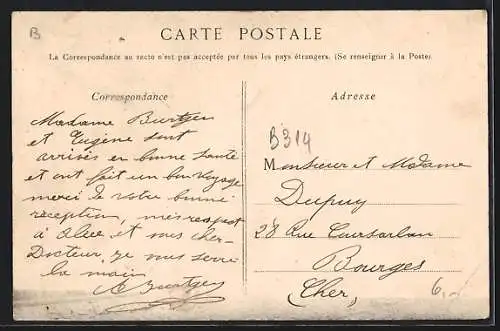 B
CARTE POSTALE
La Correspondance au recto n'est pas acceptée par tous les pays étrangers. (Se renseigner à la Poste)
Correspondance
Madame Burtger
et Eugène sont
arrivés en bonne santé
et ont fait un bon voyage
merci de votre bonne
réception, mes respect
à Alice et mes cher
Docteur, je vous serre
la main
Burtger
Adresse
B314
Monsieur et Madame
Dupuy
28 Rue Coursarlon
Bourges
Cher,
6,-